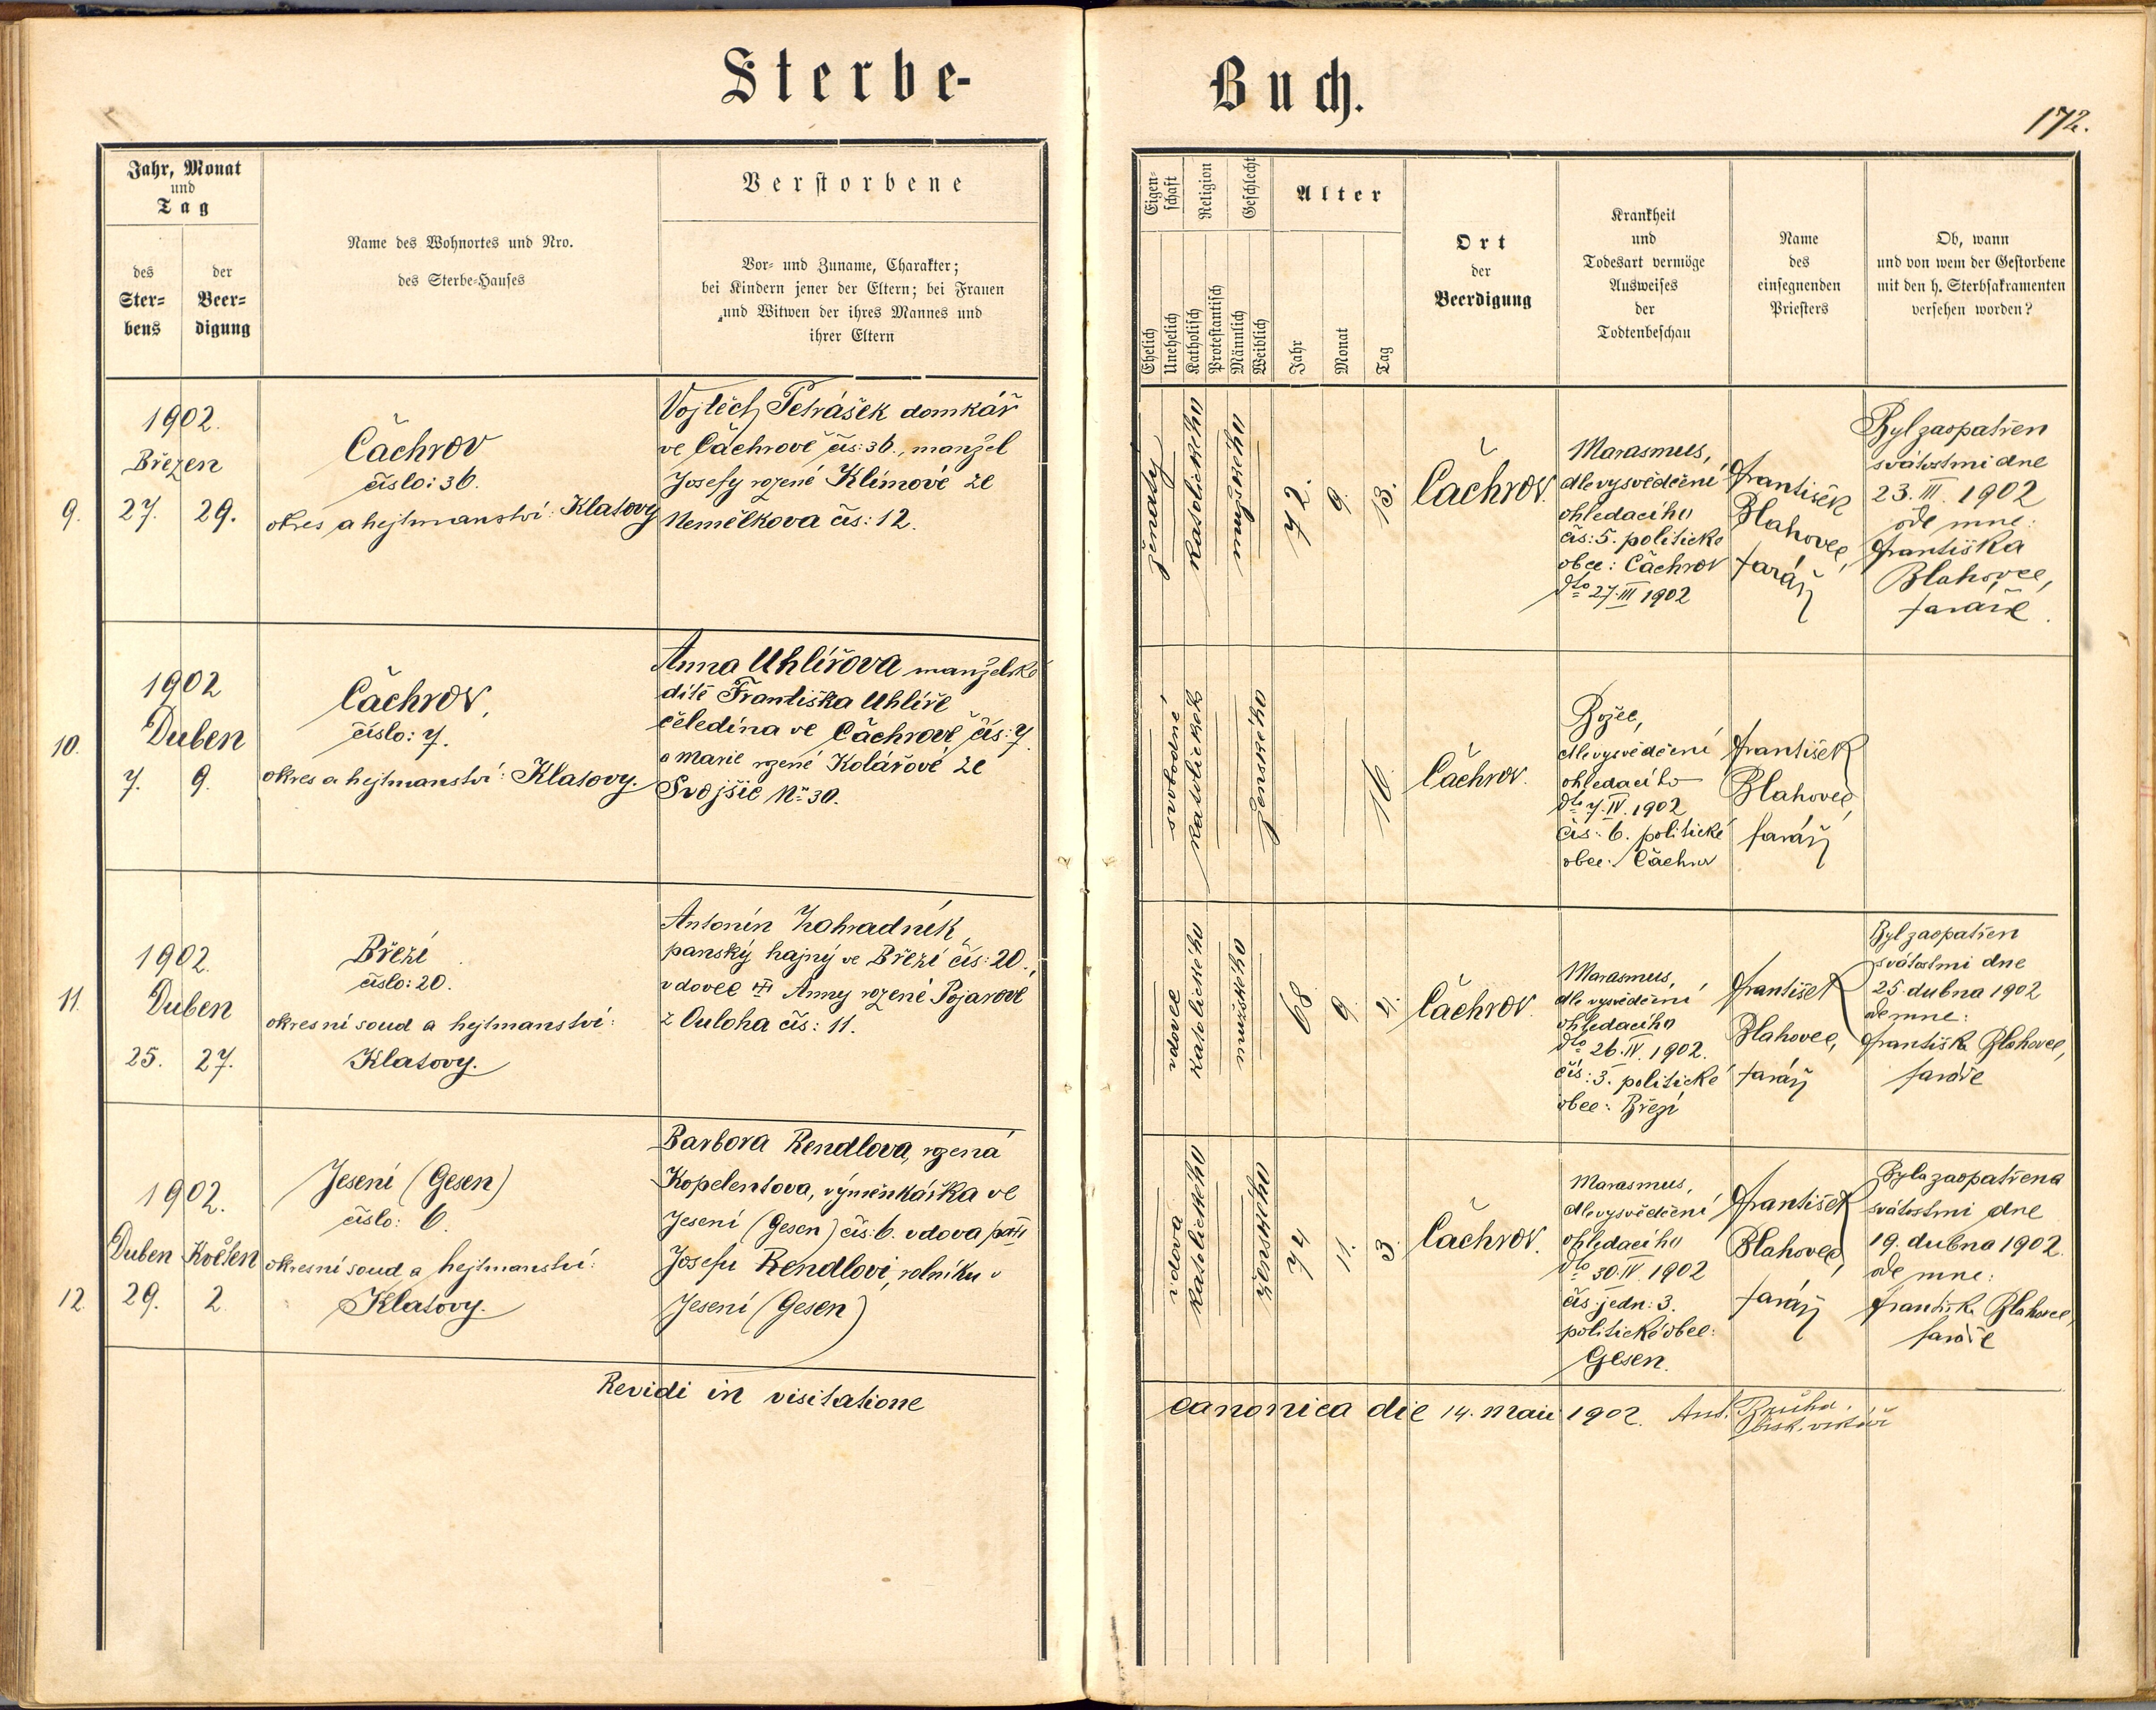 Sterbe-
Buch.
172.
Jahr, Monat
und
Tag
des
Ster-
bens
der
Beer-
digung
Name des Wohnortes und Nro.
des Sterbe-Hauses
Verstorbene
Vor- und Zuname, Charakter;
bei Kindern jener der Eltern; bei Frauen
und Witwen der ihres Mannes und
ihrer Eltern
Eigen-
schaft
Religion
Geschlecht
Alter
Ehelich
Unehelich
Katholisch
Protestantisch
Männlich
Weiblich
Jahr
Monat
Tag
Ort
der
Beerdigung
Krankheit
und
Todesart vermöge
Ausweises
der
Todtenbeschau
Name
des
einsegnenden
Priesters
Ob, wann
und von wem der Gestorbene
mit den h. Sterbsakramenten
versehen worden?
1902.
Březen
9. 27. 29.
Čachrov
číslo: 36.
okres a hejtmanství: Klatovy
Vojtěch Petrášek domkář
ve Čachrově čís: 36., manžel
Josefy rozené Klímové ze
Nemělkova čís: 12.
ženatý
katolického
mužského
72.
9.
13.
Čachrov.
Marasmus,
dle vysvědčení
ohledacího
čís: 5. politické
obce: Čachrov
dto 27. III 1902
František
Blahovec,
farář
Byl zaopatřen
svátostmi dne
23. III. 1902
ode mne:
Františka
Blahovce,
faráře.
1902
Duben
10. 7. 9.
Čachrov,
číslo: 7.
okres a hejtmanství: Klatovy.
Anna Uhlířova manželské
dítě Františka Uhlíře
čeledína ve Čachrově čís: 7.
a Marie rzené Kolářové ze
Svojšic No 30.
svobodné
katolického
ženského
16.
Čachrov.
Božec,
dle vysvědčení
ohledacího
dto 7. IV. 1902
čís: 6. politické
obce: Čachrov
František
Blahovec,
farář
1902.
Duben
11. 25. 27.
Březí
číslo: 20.
okresní soud a hejtmanství:
Klatovy.
Antonín Zahradník,
panský hajný ve Březí čís: 20.,
vdovec Anny rozené Pojarové
z Ouloha čís: 11.
vdovec
katolického
mužského
68.
9.
Čachrov.
Marasmus,
dle vysvědčení
ohledacího
dto 26. IV. 1902.
čís: 3. politické
obce: Březí
František
Blahovec,
farář
Byl zaopatřen
svátostmi dne
25. dubna 1902
ode mne:
Františka Blahovce,
faráře
1902.
Duben Květen
12. 29. 2.
Jesení (Gesen)
číslo: 6.
okresní soud a hejtmanství:
Klatovy.
Barbora Rendlova, rzená
Kopelentova, výměnkářka ve
Jesení (Gesen) čís: 6. vdova po
Josefu Rendlovi, rolníku v
Jesení (Gesen)
vdova
katolického
ženského
74
11.
3.
Čachrov.
Marasmus,
dle vysvědčení
ohledacího
dto 30. IV. 1902
čís jedn: 3.
politické obce:
Gesen.
František
Blahovec,
farář
Byla zaopatřena
svátostmi dne
19. dubna 1902.
ode mne:
Františka Blahovce,
faráře
Revidi in visitatione
canonica die 14. Maii 1902. Ant. Brůha.
bisk. vikář